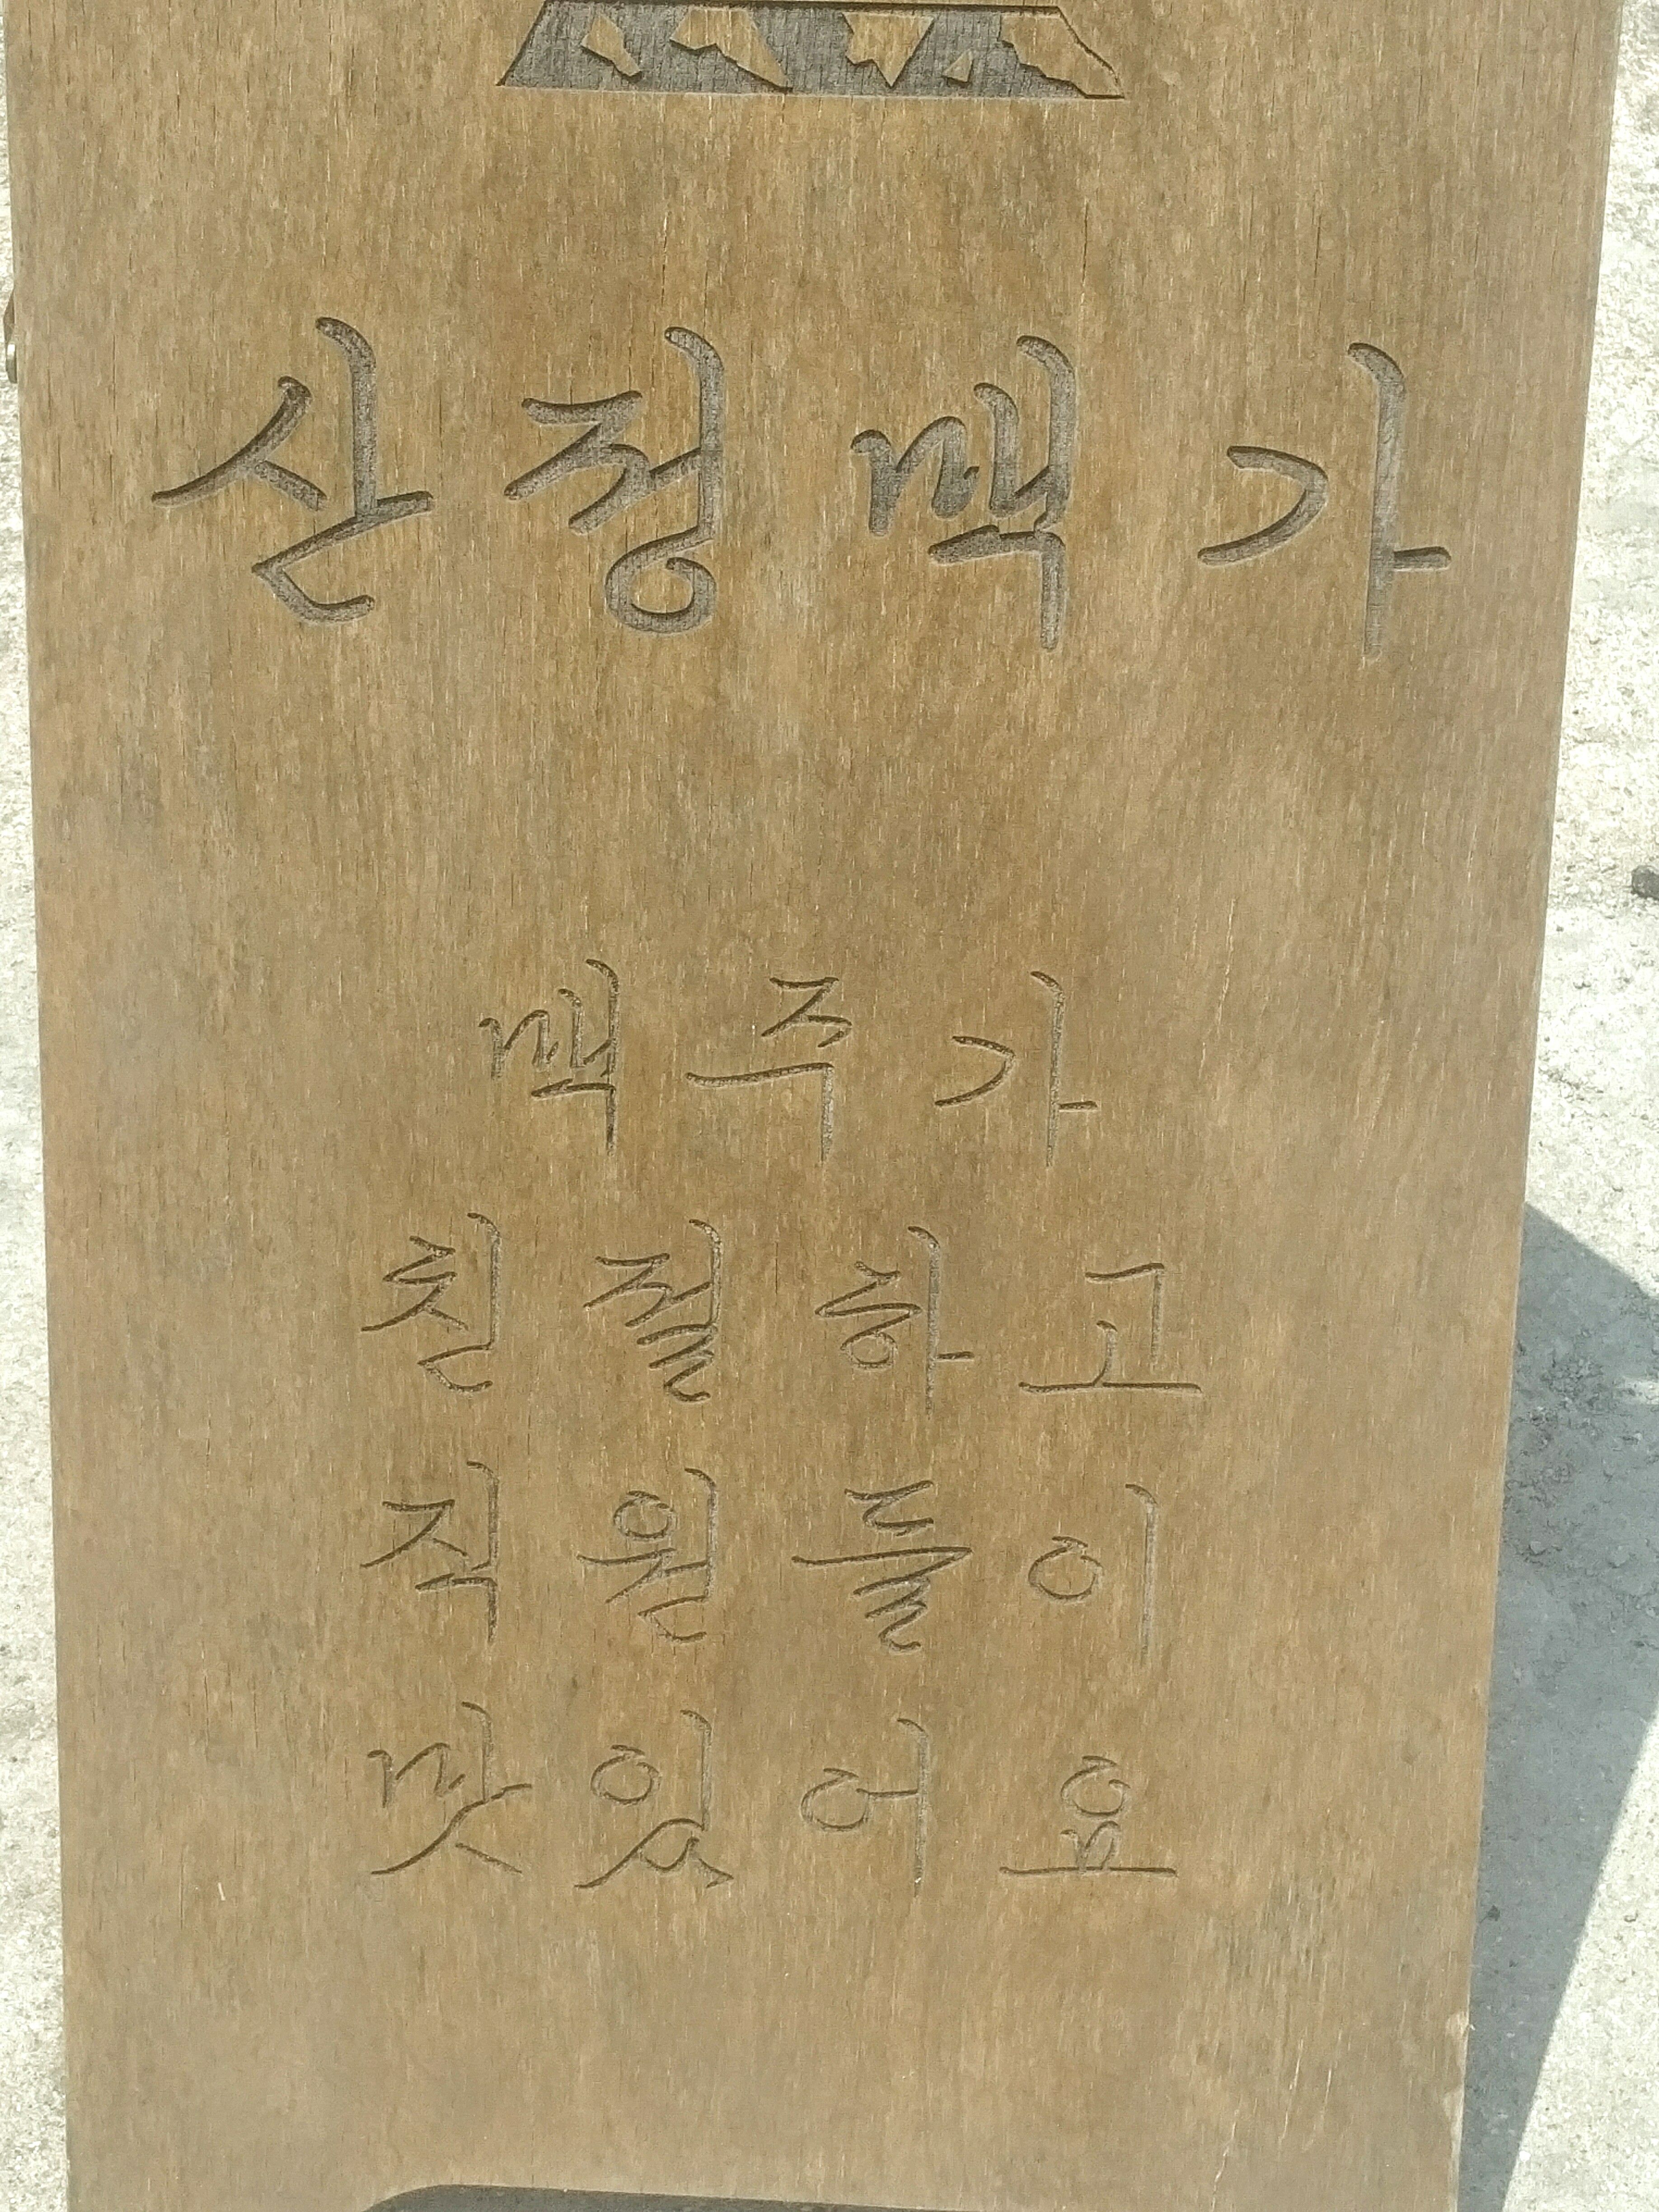 산정맥가
맥주가
친절하고
직원들이
맛있어요